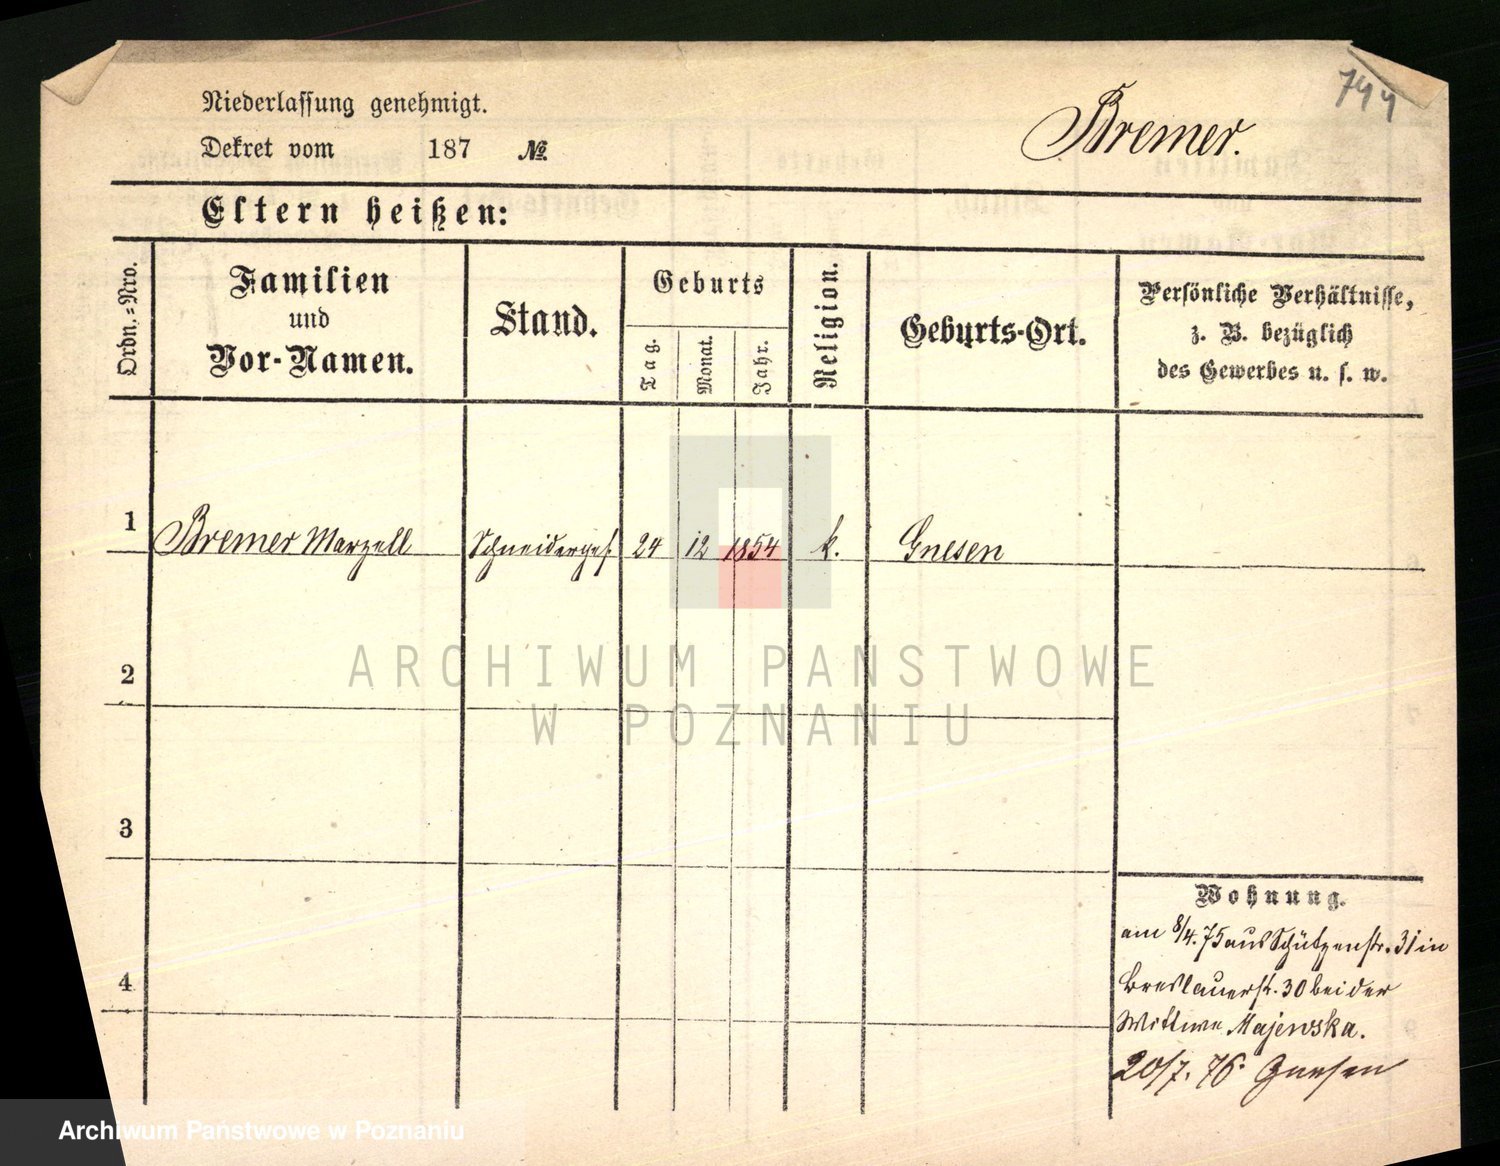 744
Niederlassung genehmigt.
Dekret vom 187 №
Bremer.
Eltern heißen:
Ordn.-Nro.
Familien
und
Vor-Namen.
Stand.
Geburts
Tag.
Monat.
Jahr.
Religion.
Geburts-Ort.
Persönliche Verhältnisse,
z. B. bezüglich
des Gewerbes u. s. w.
1 Bremer Marzell Schneiderges. 24 12 1854 k. Gnesen
2
3
4
Wohnung.
am 8/4.75 aus Schützenstr. 31 in
Breslauerst. 30 bei der
Wittwe Majewska.
20/7. 76. Gnesen
ARCHIWUM PAŃSTWOWE
W POZNANIU
Archiwum Państwowe w Poznaniu